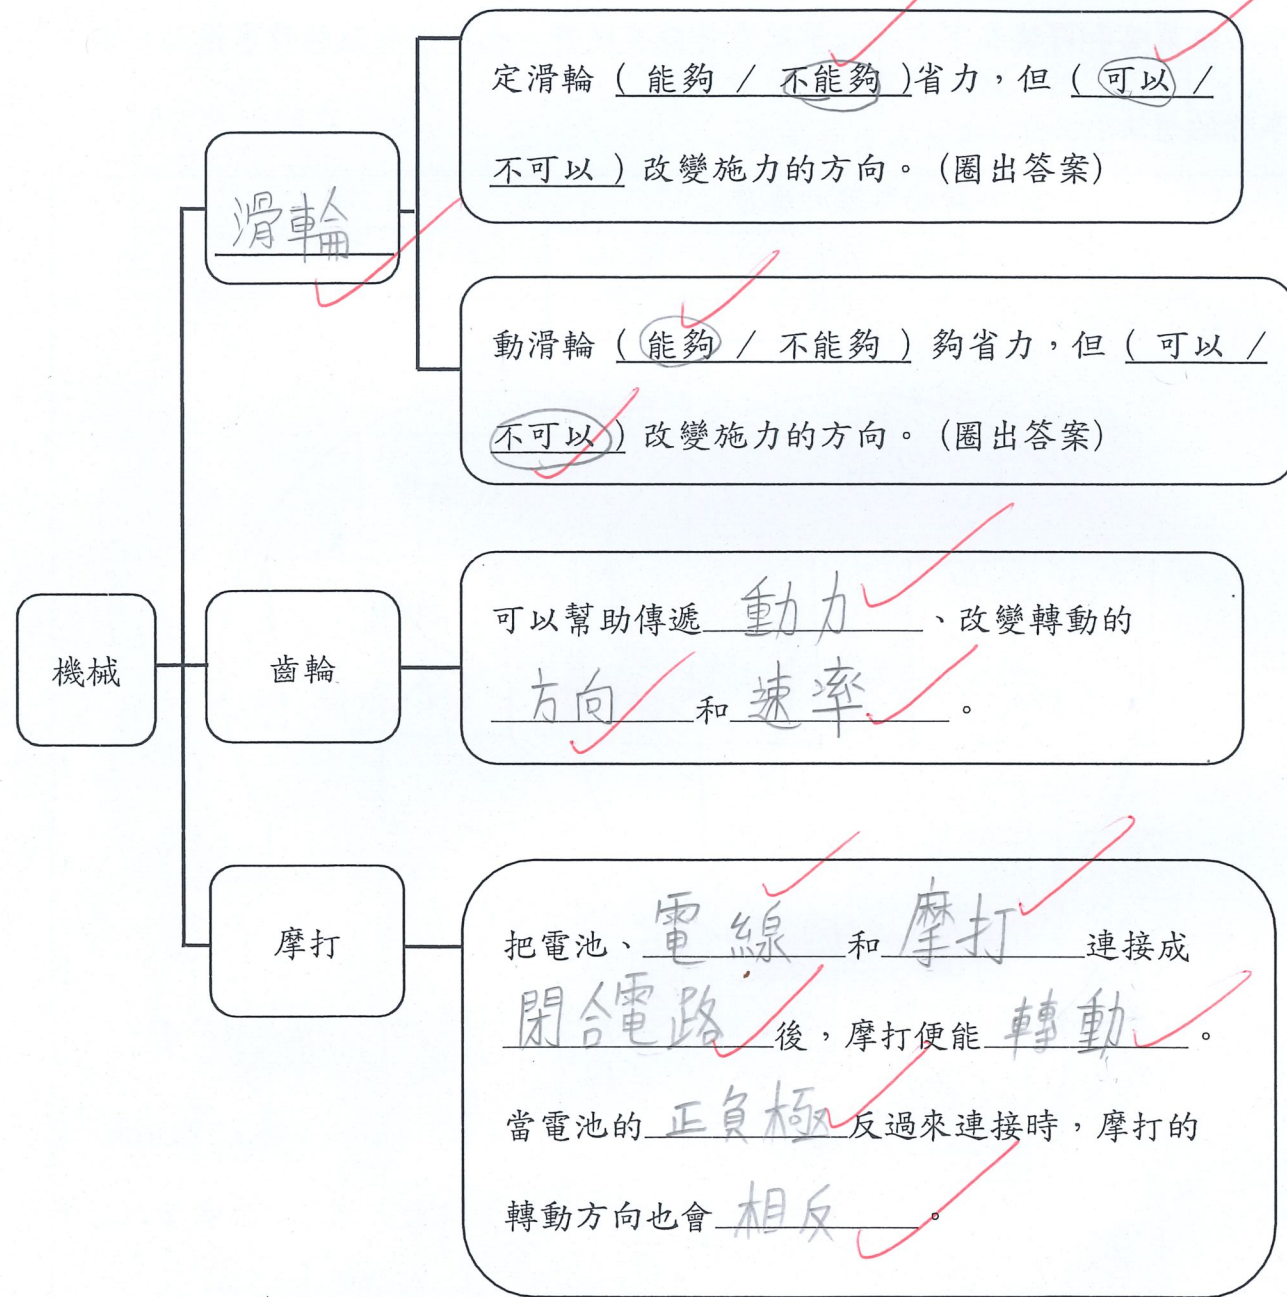 定滑輪 ( 能夠 / 不能夠 )省力，但 ( 可以 /
不可以 ) 改變施力的方向。(圈出答案)
滑輪
動滑輪 ( 能夠 / 不能夠 ) 夠省力，但 ( 可以 /
不可以 ) 改變施力的方向。(圈出答案)
機械
齒輪
可以幫助傳遞 動力 、改變轉動的
方向 和 速率 。
摩打
把電池、 電線 和 摩打 連接成
閉合電路 後，摩打便能 轉動 。
當電池的 正負極 反過來連接時，摩打的
轉動方向也會 相反 。